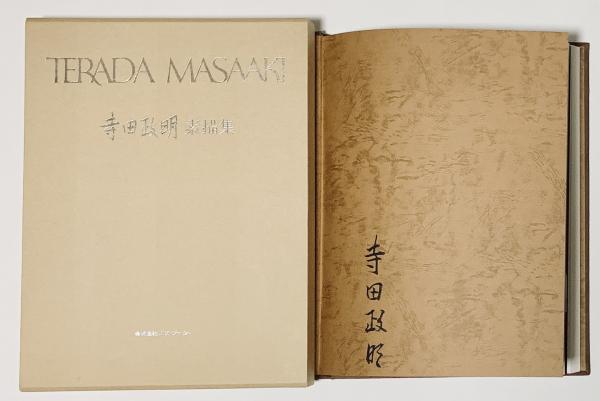 TERADA MASAAKI
寺田政明 素描集
寺田政明